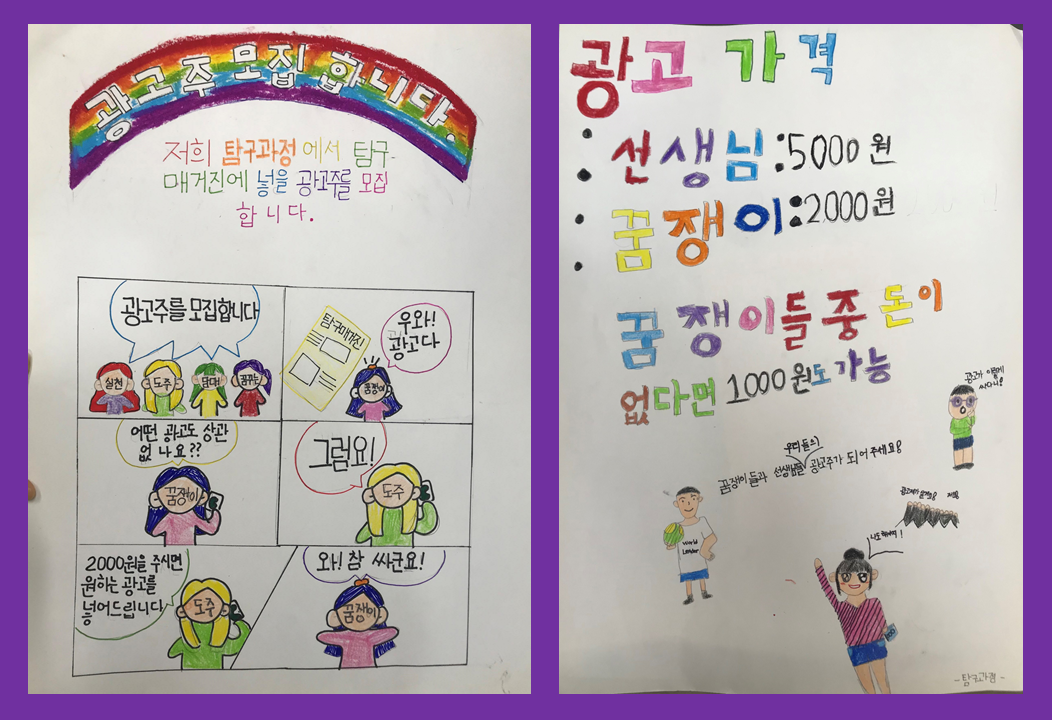 광고주 모집 합니다.
저희 탐구과정에서 탐구
매거진에 넣을 광고주를 모집
합니다.
광고주를 모집합니다
실천
도주
담대
꿈꾸는
탐구매거진
우와!
광고다
꿈쟁이
어떤 광고도 상관
없나요??
꿈쟁이
그럼요!
도주
2000원을 주시면
원하는 광고를
넣어드립니다
도주
와! 참 싸군요!
꿈쟁이
광고 가격
선생님:5000원
꿈쟁이:2000원
꿈쟁이들 중 돈이
없다면 1000원도 가능
광고가 이렇게
싸다니!
우리들의
꿈쟁이들과 선생님들 광고주가 되어주세요!
World
Leader
저요!
나도 해야지!
-탐구과정-